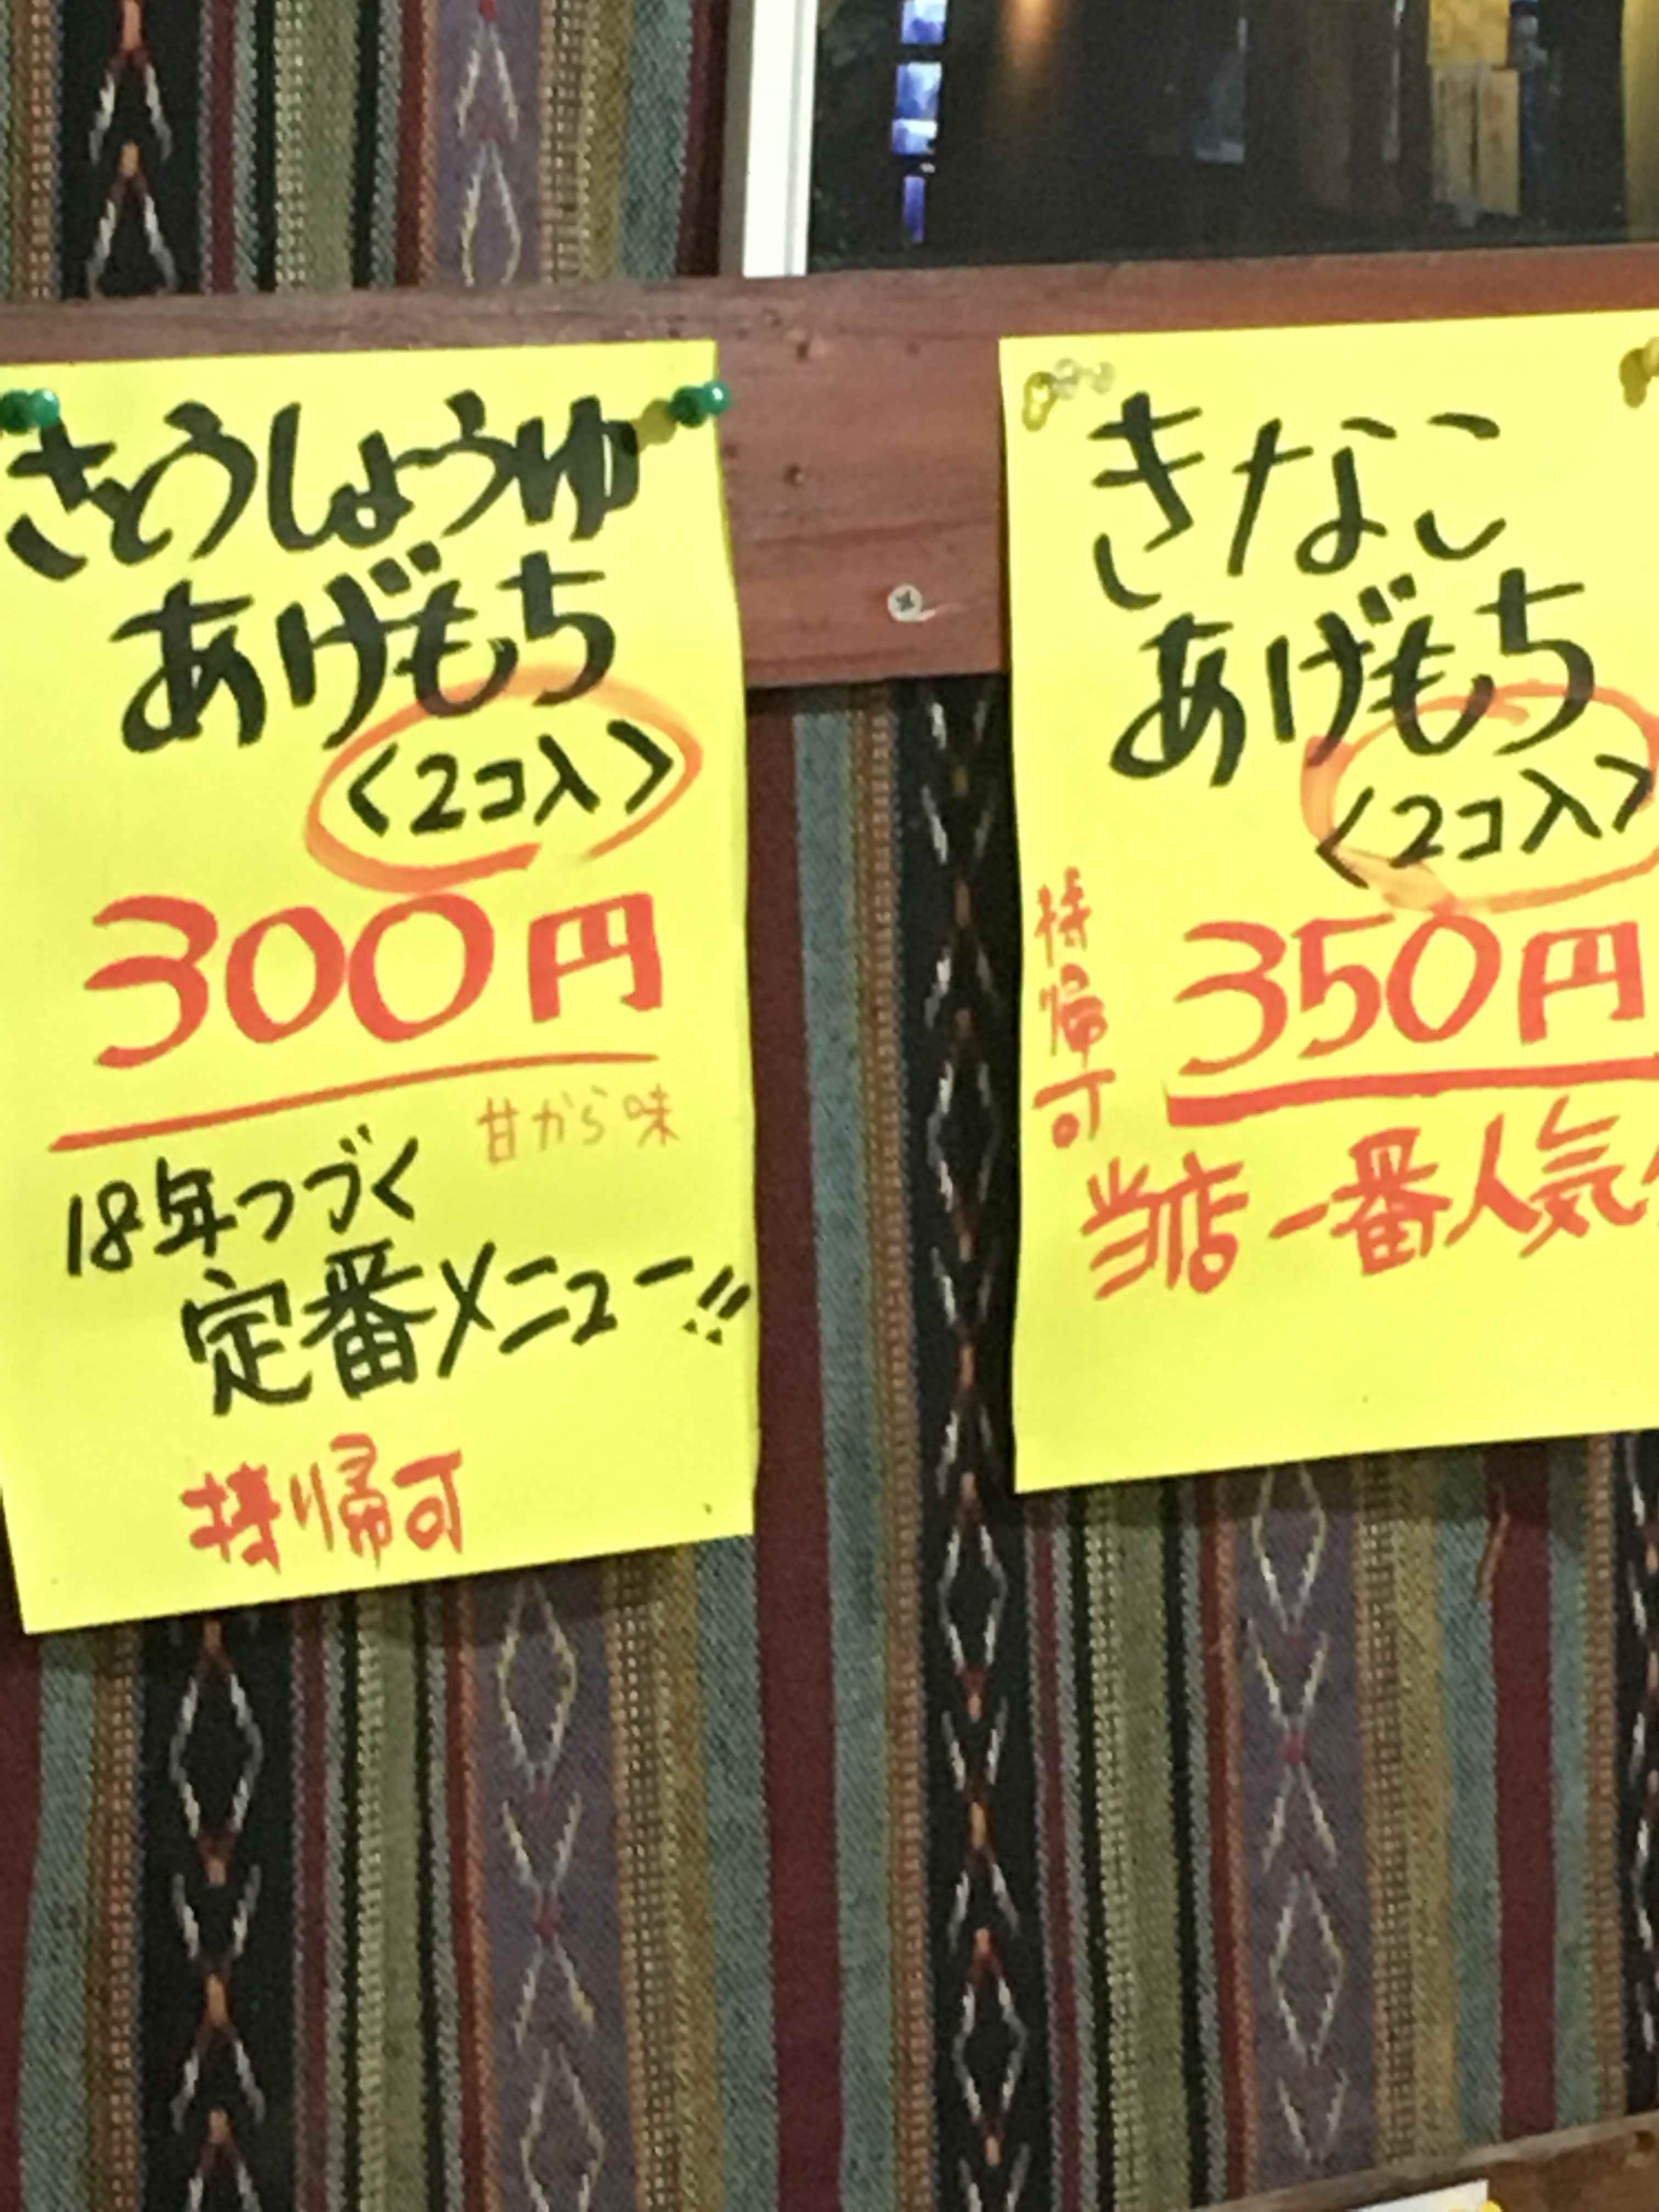 さとうしょうゆ
あげもち
<2コ入>
300円
甘から味
18年つづく
定番メニュー!!
持り帰可
きなこ
あげもち
<2コ入>
持帰可
350円
当店一番人気